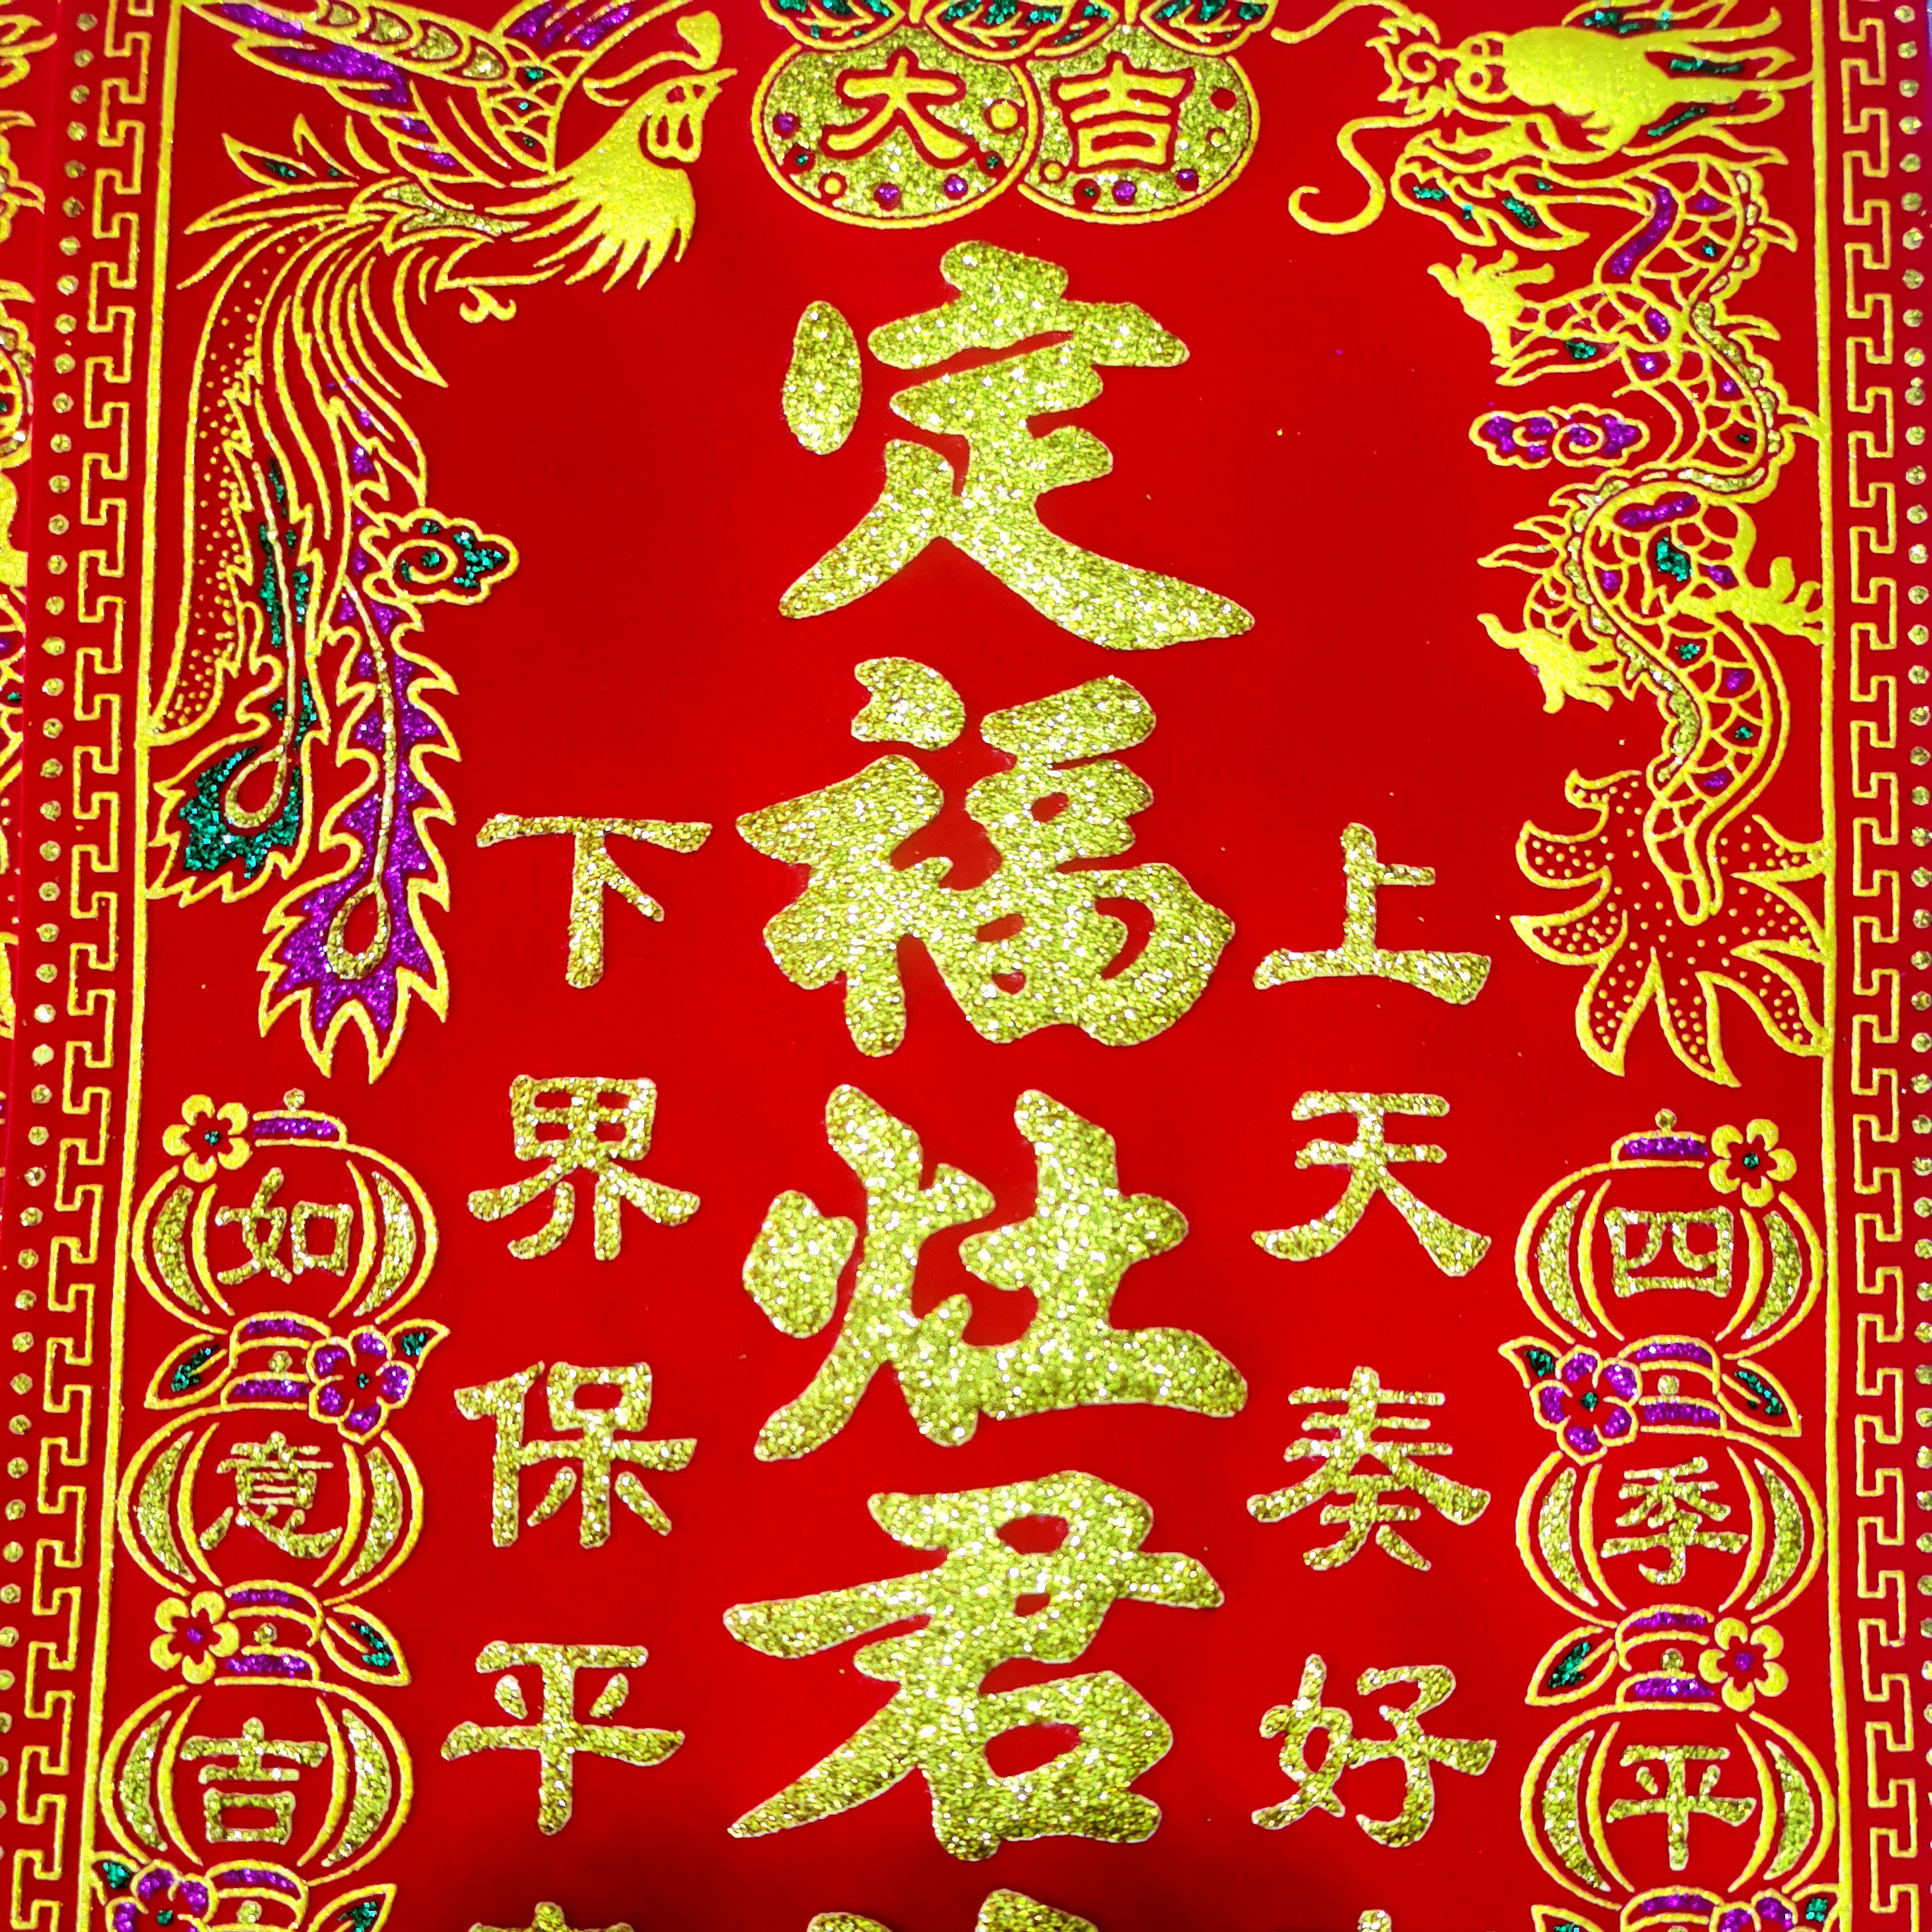 大吉
定福灶君
上天奏好
下界保平
四季平
如意吉